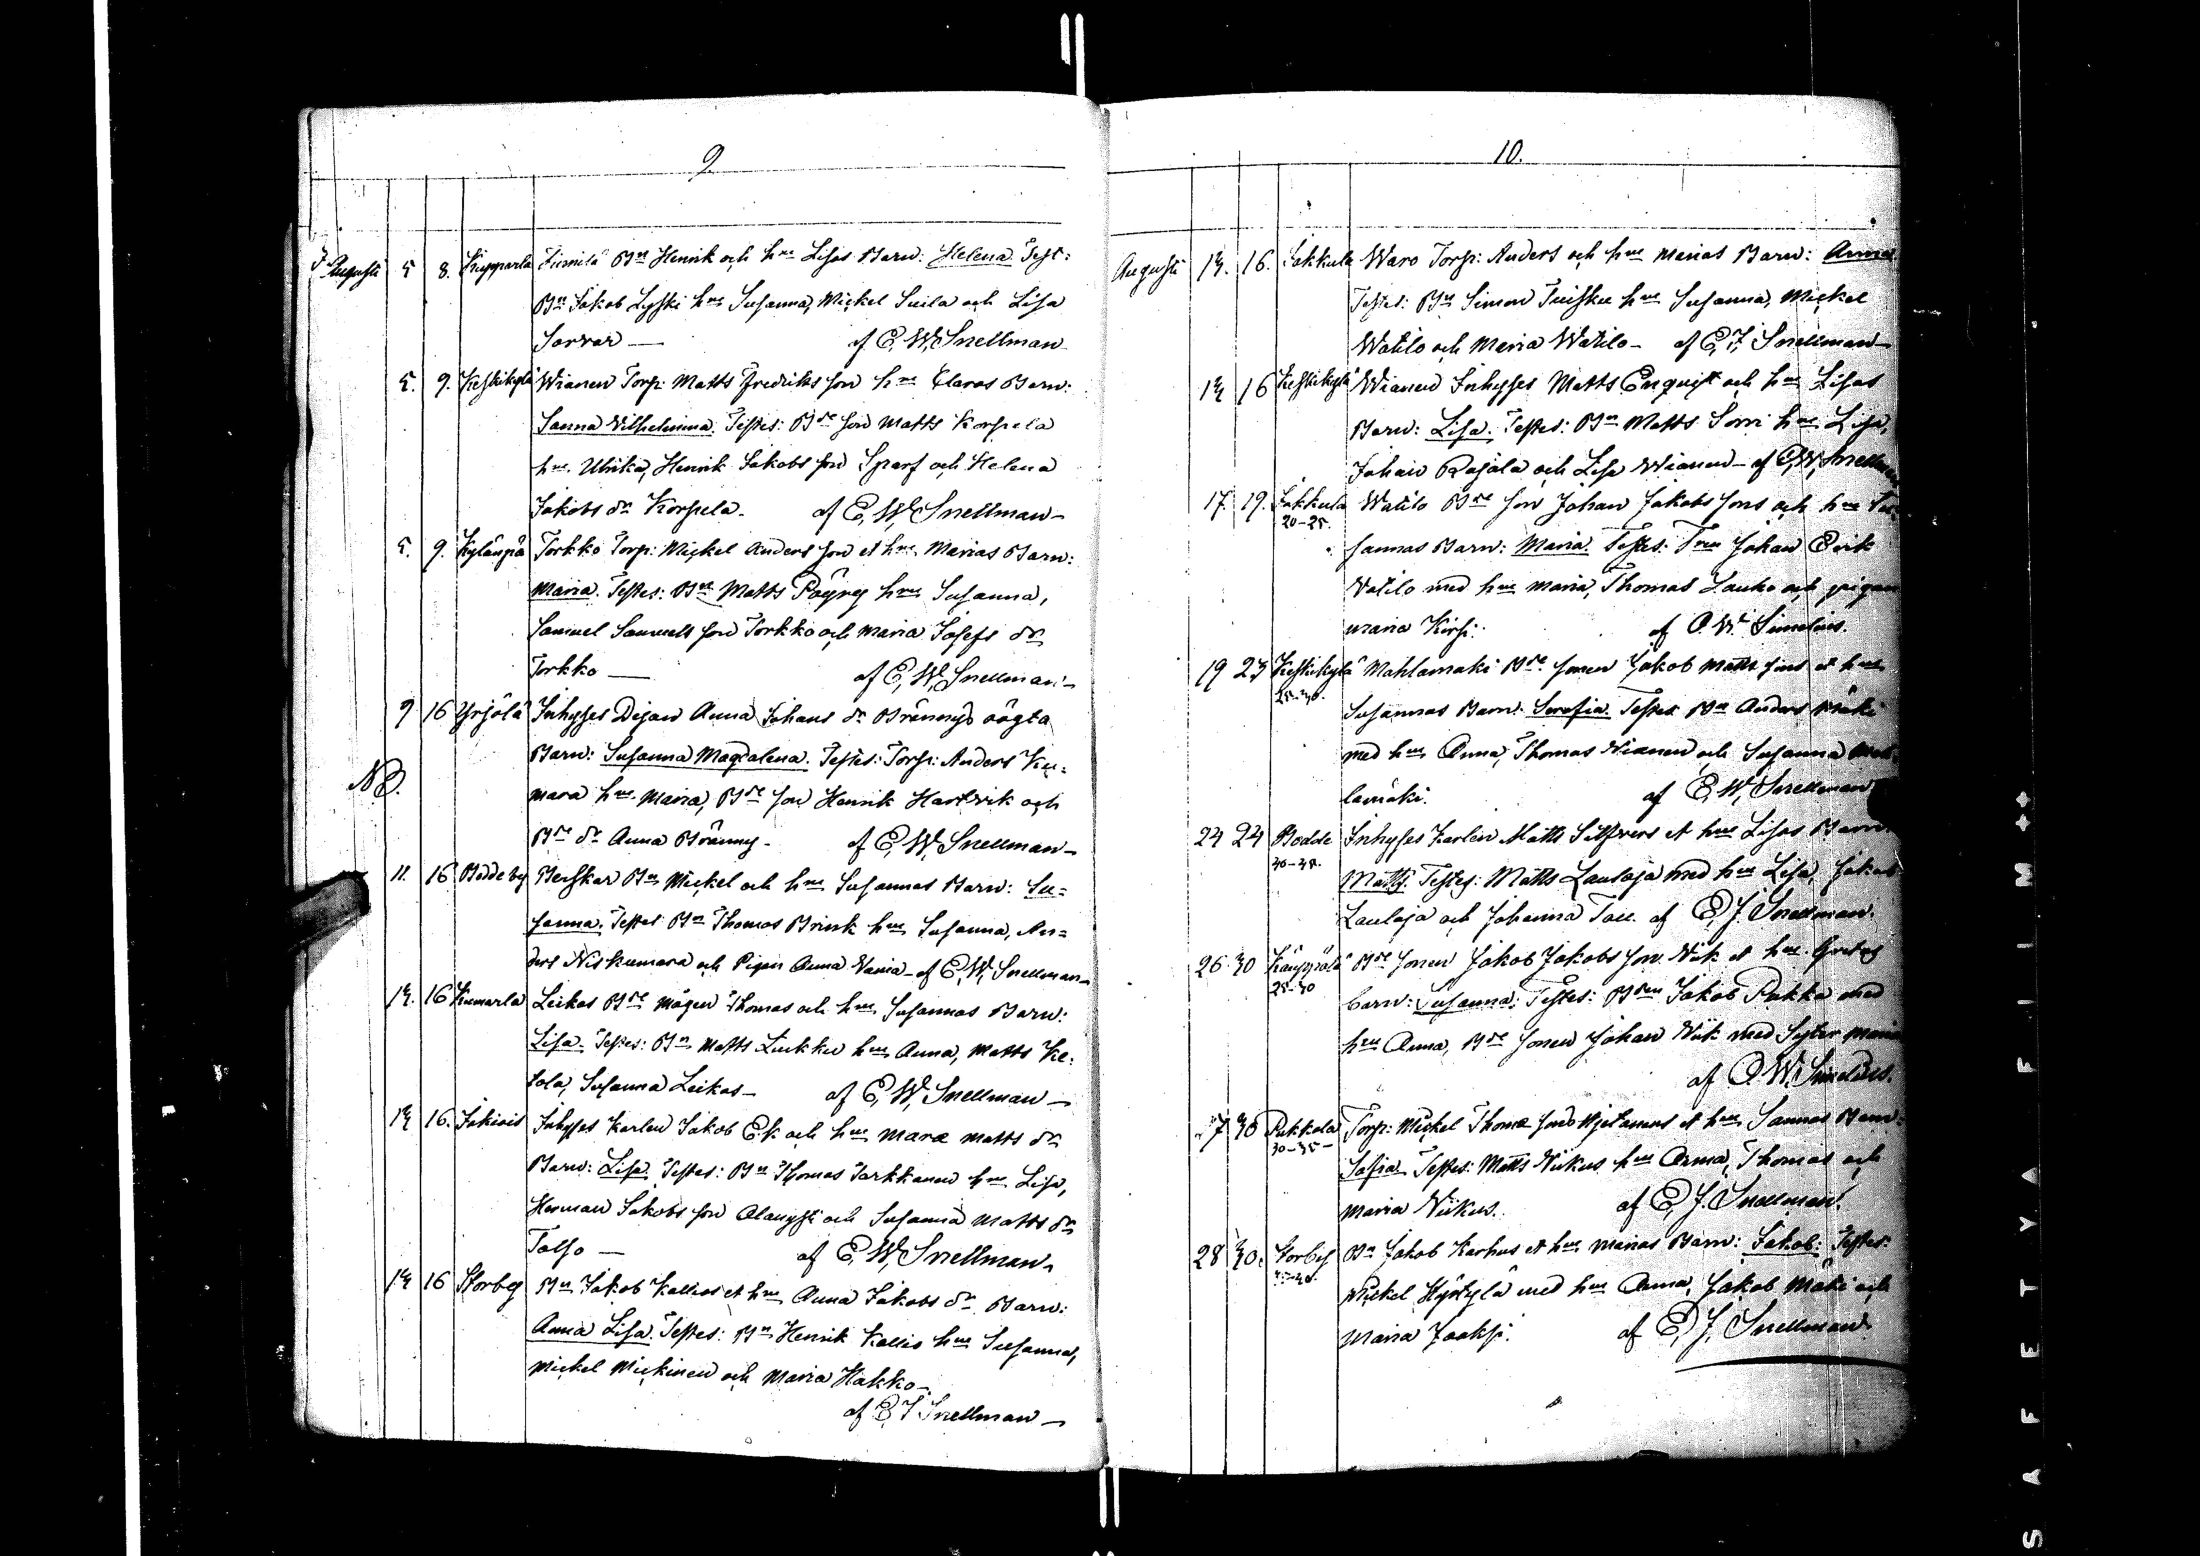 9.
Augusti 5 8. Kupparla Bn Henrik och hru Lisas Barn: Helena. Test:
Bn Jakob Lyski hru Susanna, Mickel Suila och Lisa
Sorvar — af E, W, Snellman
5. 9. Keskikylä Wianen Torp: Matts Fredriks son hru Claras Barn:
Sanna Vilhelmina. Testes: Bde son Matts Korpela
hru Ulrika, Henrik Jakobs son Sparf och Helena
Jakobs dr Korpela. af E, W, Snellman —
5. 9. Kylänpä Torkko Torp: Mickel Anders son et hru Marias Barn:
Maria. Testes: Bn Matts Pöyry hru Susanna,
Samuel Samuels son Torkko och Maria Josefs dr
Torkko — af E, W, Snellman —
9 16 Yrjölä Inhyses Pigan Anna Johans dr Brännys oägta
Barn: Susanna Magdalena. Testes: Torp: Anders Ku=
NB. mara hru Maria, Bde son Henrik Hartvik och
Bde dr Anna Bränny - af E, W, Snellman —
11. 16 Boddeby Bn Mickel och hru Susannas Barn: Su=
sanna. Testes Bn Thomas Brink hru Susanna, An=
ders Niskumara och Pigan Anna Wania - af E, W, Snellman —
14. 16 Kumarla Leikas Bde mågen Thomas och hru Susannas Barn:
Lisa. Testes: Bn Matts Luukku hru Anna, Matts Ke:
tola, Susanna Leikas — af E, W, Snellman —
14 16. Jakiois Inhyses Karlen Jakob Ek och hru Mara Matts dr
Barn: Lisa. Testes: Bn Thomas Tarkkanen hru Lisa,
Herman Jakobs son och Susanna Matts dr
Talso — af E, W, Snellman —
14 16 Storby Bn Jakob Kallios et hru Anna Jakobs dr Barn:
Anna Lisa. Testes: Bn Henrik Kallio hru Susanna,
Mickel Mickinen och Maria Hakko —
af E, J Snellman —
10.
Augusti 14. 16. Jakkula Waro Torp: Anders och hru Marias Barn: Anna
Testes: Bn Simon Tuisku hru Susanna, Mickel
Watilo och Maria Watilo — af E, J, Snellman —
14 16 Keskikylä Wianen Inhyses Matts Enquist och hru Lisas
Barn: Lisa. Testes: Bn Matts Sorri hru Lisa,
Johan Rajala och Lisa Wianen — af E, W, Snellman
17. 19. Jakkula Watilo Bde son Johan Jakobs sons och hru Su
20-25.
sannas Barn: Maria. Testes: Johan Erik
Vatilo med hru Maria, Thomas Lauko och pigan
Maria Kirsi. af O. W. Simelius.
19 23 Keskikylä Mahlamäki Bde sonen Jakob Matts sons et hru
25-30.
Susannas Barn: Serafia. Testes Bn Anders Mäki
med hru Anna, Thomas Wianen och Susanna Mah
lamäki. af E, W, Snellman
24 24 Bodde Inhyses Karlen Matts Silfvers et hru Lisas Barn:
Matts. Testes: Matts Laulaja med hru Lisa, Jakob
Laulaja och Johanna af E, J. Snellman.
26. 30 Bde sonen Jakob Jakobs son Vik et hru Gretas
25-30
barn: Susanna. Testes: Bden Jakob Pukka med
hru Anna, Bde sonen Johan Vik med Syster Maria
af O. W. Simelius.
27 30 Pukkala Torp: Mickel Thomæ sons et hru Sannas Barn:
30-35 —
Sofia Testes: Matts Niikus hru Anna, Thomas och
Maria Niikus. af E, J. Snellman.
28 30. Storby Bn Jakob Karhus et hru Marias Barn: Jakob: Testes:
Mickel Hyökylä med hru Anna, Jakob Mäki och
Maria Jaaksi. af E, J, Snellman
SAFETY FILM